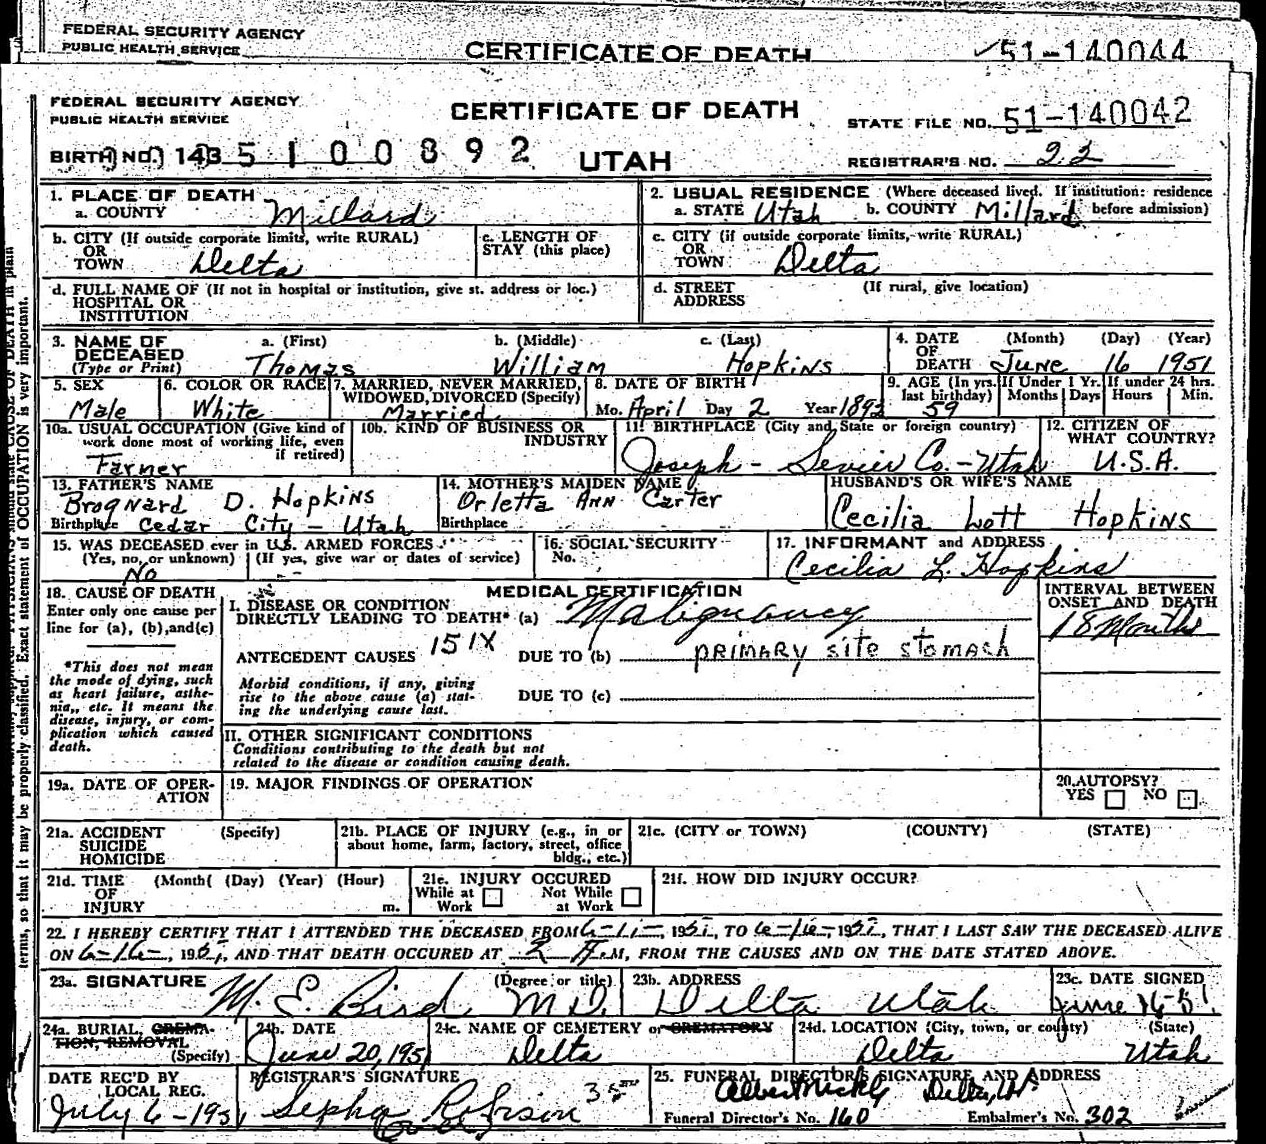 FEDERAL SECURITY AGENCY
PUBLIC HEALTH SERVICE
CERTIFICATE OF DEATH
51-140044
FEDERAL SECURITY AGENCY
PUBLIC HEALTH SERVICE
CERTIFICATE OF DEATH
STATE FILE NO. 51-140042
BIRTH NO. 143 5 1 0 0 8 9 2
UTAH
REGISTRAR'S NO. 22
1. PLACE OF DEATH
a. COUNTY Millard
2. USUAL RESIDENCE (Where deceased lived. If institution: residence before admission)
a. STATE Utah b. COUNTY Millard
b. CITY (If outside corporate limits, write RURAL)
OR
TOWN Delta
c. LENGTH OF
STAY (this place)
c. CITY (if outside corporate limits, write RURAL)
OR
TOWN Delta
d. FULL NAME OF (If not in hospital or institution, give st. address or loc.)
HOSPITAL OR
INSTITUTION
d. STREET (If rural, give location)
ADDRESS
3. NAME OF DECEASED (Type or Print)
a. (First) Thomas
b. (Middle) William
c. (Last) Hopkins
4. DATE OF DEATH (Month) (Day) (Year)
June 16 1951
5. SEX
Male
6. COLOR OR RACE
White
7. MARRIED, NEVER MARRIED,
WIDOWED, DIVORCED (Specify)
Married
8. DATE OF BIRTH
Mo. April Day 2 Year 1892
9. AGE (In yrs. last birthday)
59
If Under 1 Yr. Months Days
If under 24 hrs. Hours Min.
10a. USUAL OCCUPATION (Give kind of
work done most of working life, even
if retired)
Farmer
10b. KIND OF BUSINESS OR
INDUSTRY
11. BIRTHPLACE (City and State or foreign country)
Joseph - Sevier Co. - Utah
12. CITIZEN OF
WHAT COUNTRY?
U.S.A.
13. FATHER'S NAME
Brognard D. Hopkins
Birthplace Cedar City - Utah
14. MOTHER'S MAIDEN NAME
Orletta Ann Carter
Birthplace
HUSBAND'S OR WIFE'S NAME
Cecilia Lott Hopkins
15. WAS DECEASED ever in U.S. ARMED FORCES
(Yes, no, or unknown) (If yes, give war or dates of service)
No
16. SOCIAL SECURITY
No.
17. INFORMANT and ADDRESS
Cecilia L. Hopkins
18. CAUSE OF DEATH
Enter only one cause per
line for (a), (b), and (c)
*This does not mean
the mode of dying, such
as heart failure, asthe-
nia, etc. It means the
disease, injury, or com-
plication which caused
death.
MEDICAL CERTIFICATION
I. DISEASE OR CONDITION
DIRECTLY LEADING TO DEATH* (a) Malignancy
ANTECEDENT CAUSES 151X DUE TO (b) primary site stomach
Morbid conditions, if any, giving
rise to the above cause (a) stat-
ing the underlying cause last.
DUE TO (c)
INTERVAL BETWEEN
ONSET AND DEATH
18 Months
II. OTHER SIGNIFICANT CONDITIONS
Conditions contributing to the death but not
related to the disease or condition causing death.
19a. DATE OF OPER-
ATION
19. MAJOR FINDINGS OF OPERATION
20. AUTOPSY?
YES NO
21a. ACCIDENT (Specify)
SUICIDE
HOMICIDE
21b. PLACE OF INJURY (e.g., in or
about home, farm, factory, street, office
bldg., etc.)
21c. (CITY or TOWN) (COUNTY) (STATE)
21d. TIME (Month( (Day) (Year) (Hour)
OF
INJURY m.
21e. INJURY OCCURED
While at Work Not While at Work
21f. HOW DID INJURY OCCUR?
22. I HEREBY CERTIFY THAT I ATTENDED THE DECEASED FROM 6-1-, 1951, TO 6-16-, 1951, THAT I LAST SAW THE DECEASED ALIVE
ON 6-16-, 1951, AND THAT DEATH OCCURED AT 2 A.M, FROM THE CAUSES AND ON THE DATE STATED ABOVE.
23a. SIGNATURE (Degree or title)
M. E. Bird M.D.
23b. ADDRESS
Delta Utah
23c. DATE SIGNED
June 16-51
24a. BURIAL, CREMA-
TION, REMOVAL
(Specify)
24b. DATE
June 20, 1951
24c. NAME OF CEMETERY or CREMATORY
Delta
24d. LOCATION (City, town, or county) (State)
Delta Utah
DATE REC'D BY
LOCAL REG.
July 6-1951
REGISTRAR'S SIGNATURE
Robison
25. FUNERAL DIRECTOR'S SIGNATURE AND ADDRESS
Delta, Ut
Funeral Director's No. 160 Embalmer's No. 302
terms, so that it may be properly classified. Exact statement of OCCUPATION is very important.